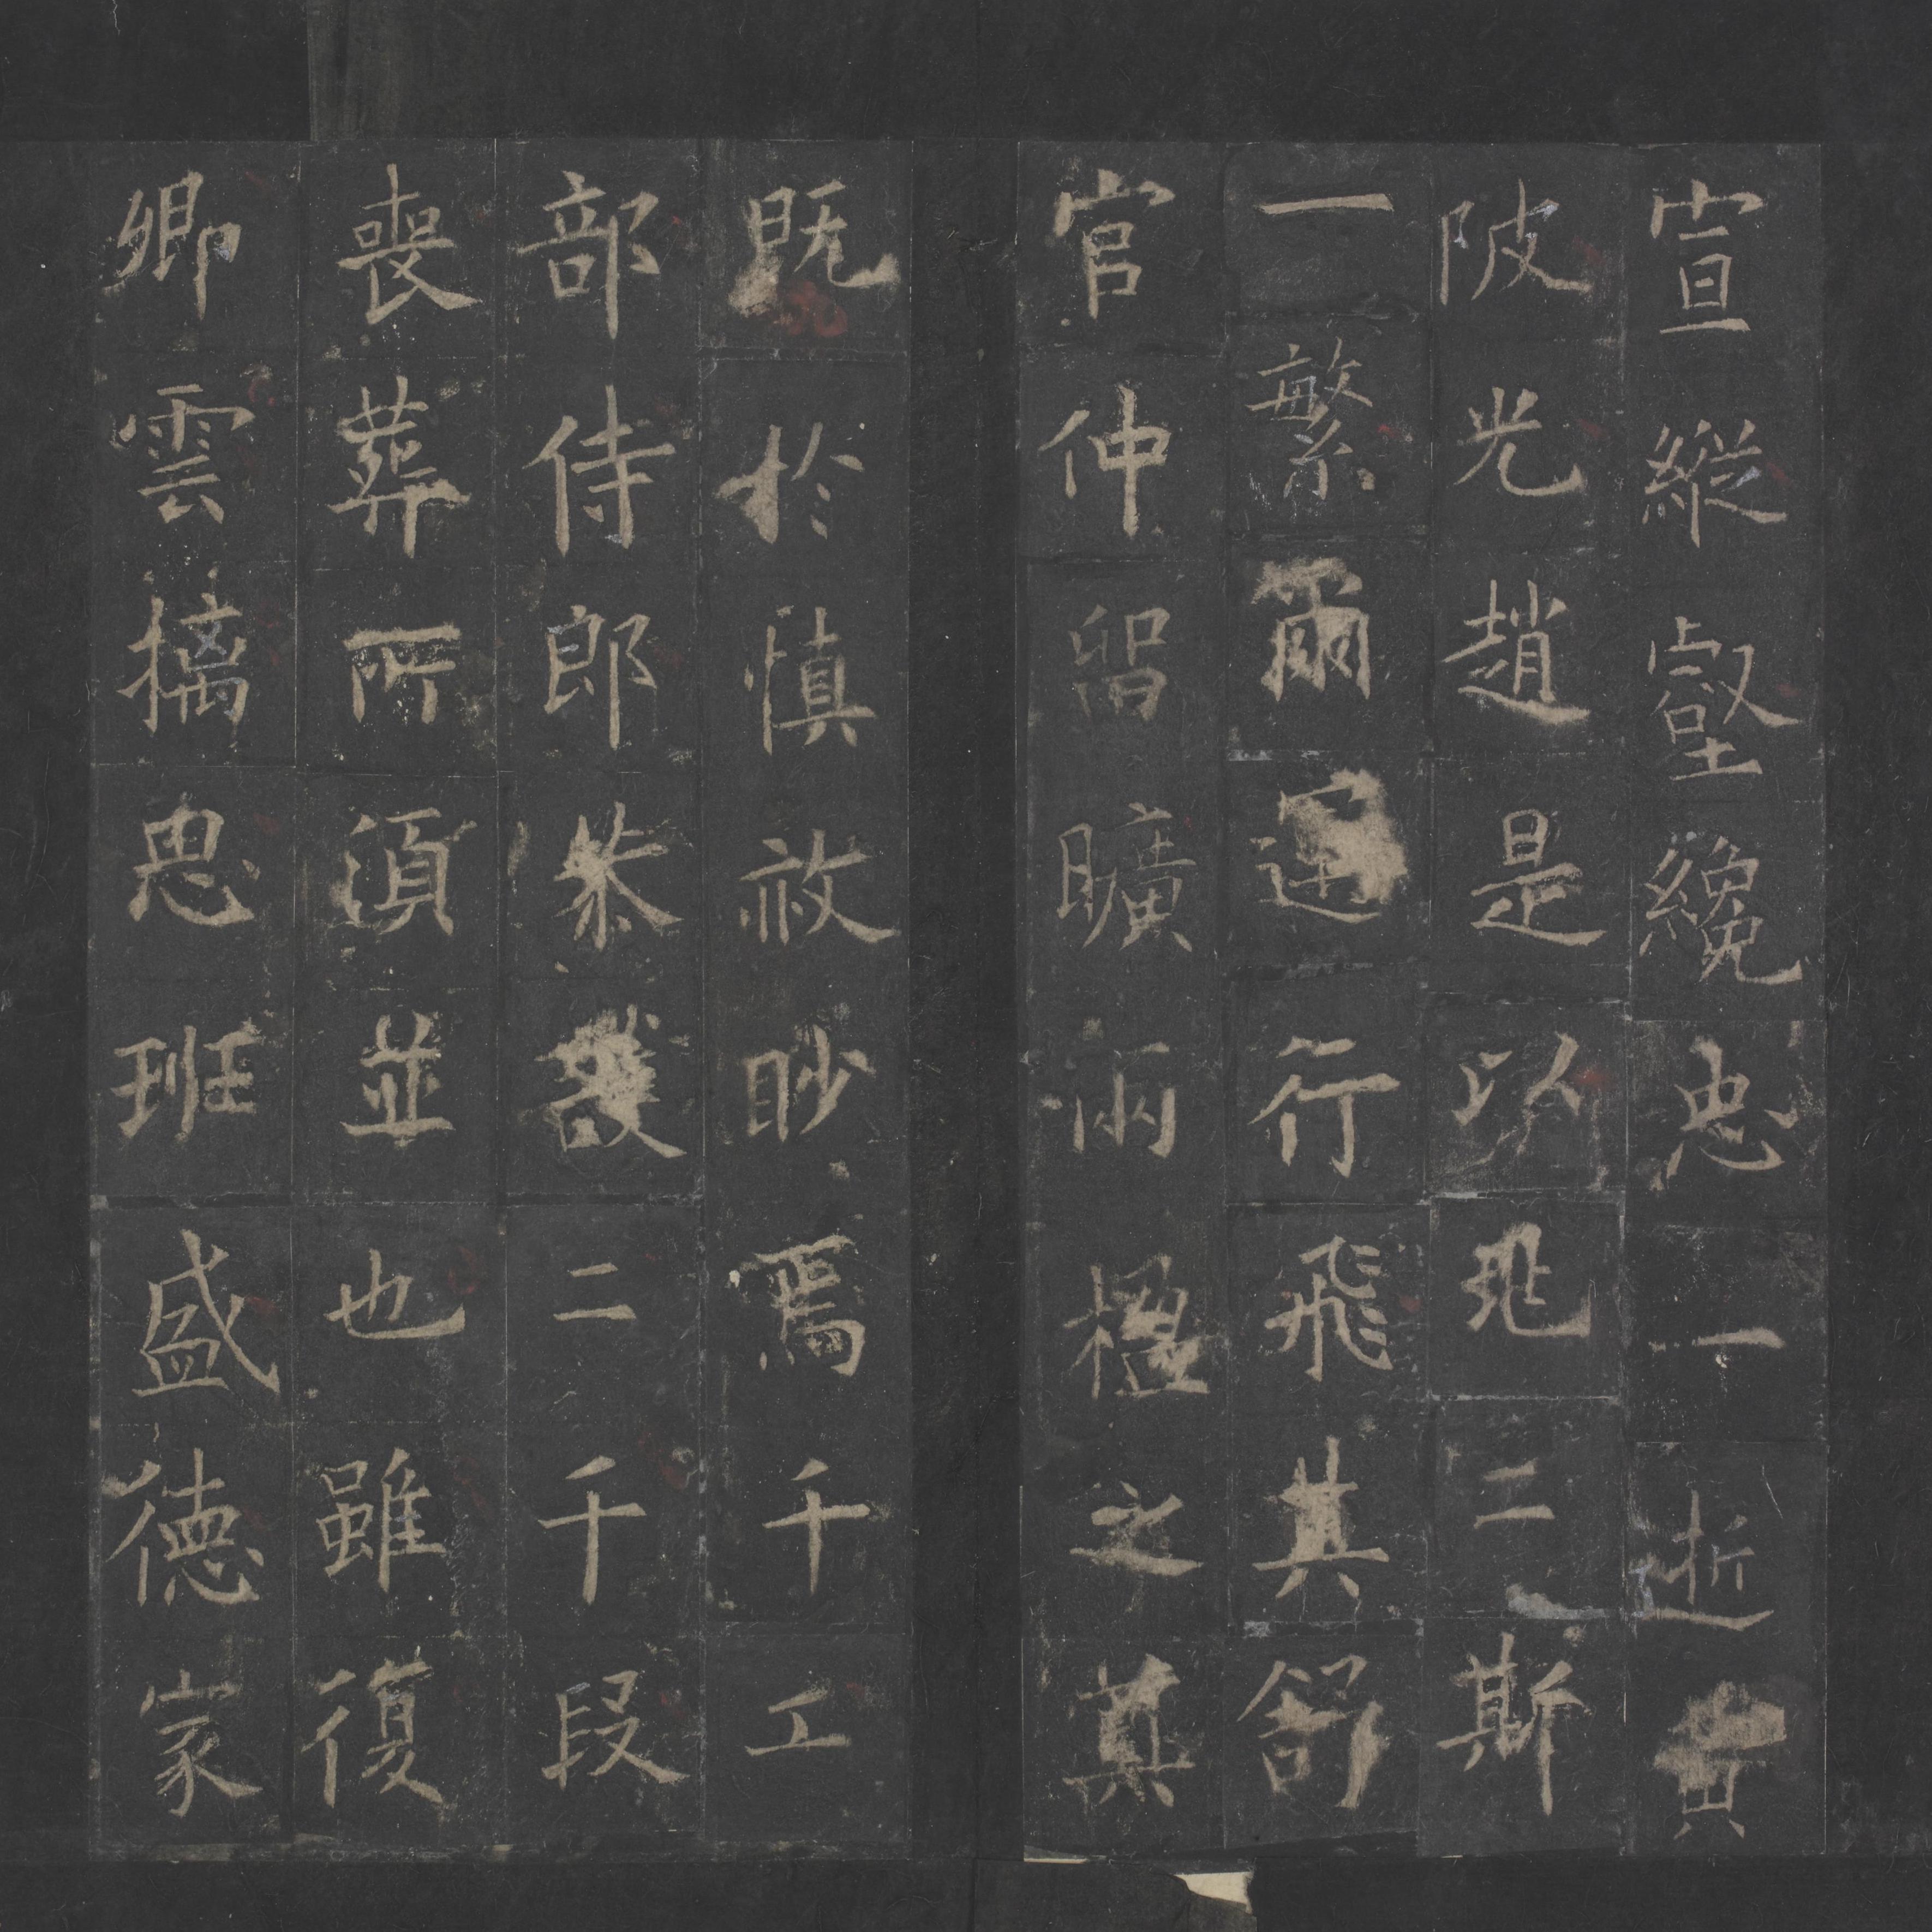 宣縱壑纔忠一逝寅
陂光趙是以昆二斯
一繁爾運行飛其舒
官仲留曠兩楹之奠
既於慎赦眇焉千工
部侍郎恭護二千段
喪葬所須並也雖復
卿雲摛思班盛德家